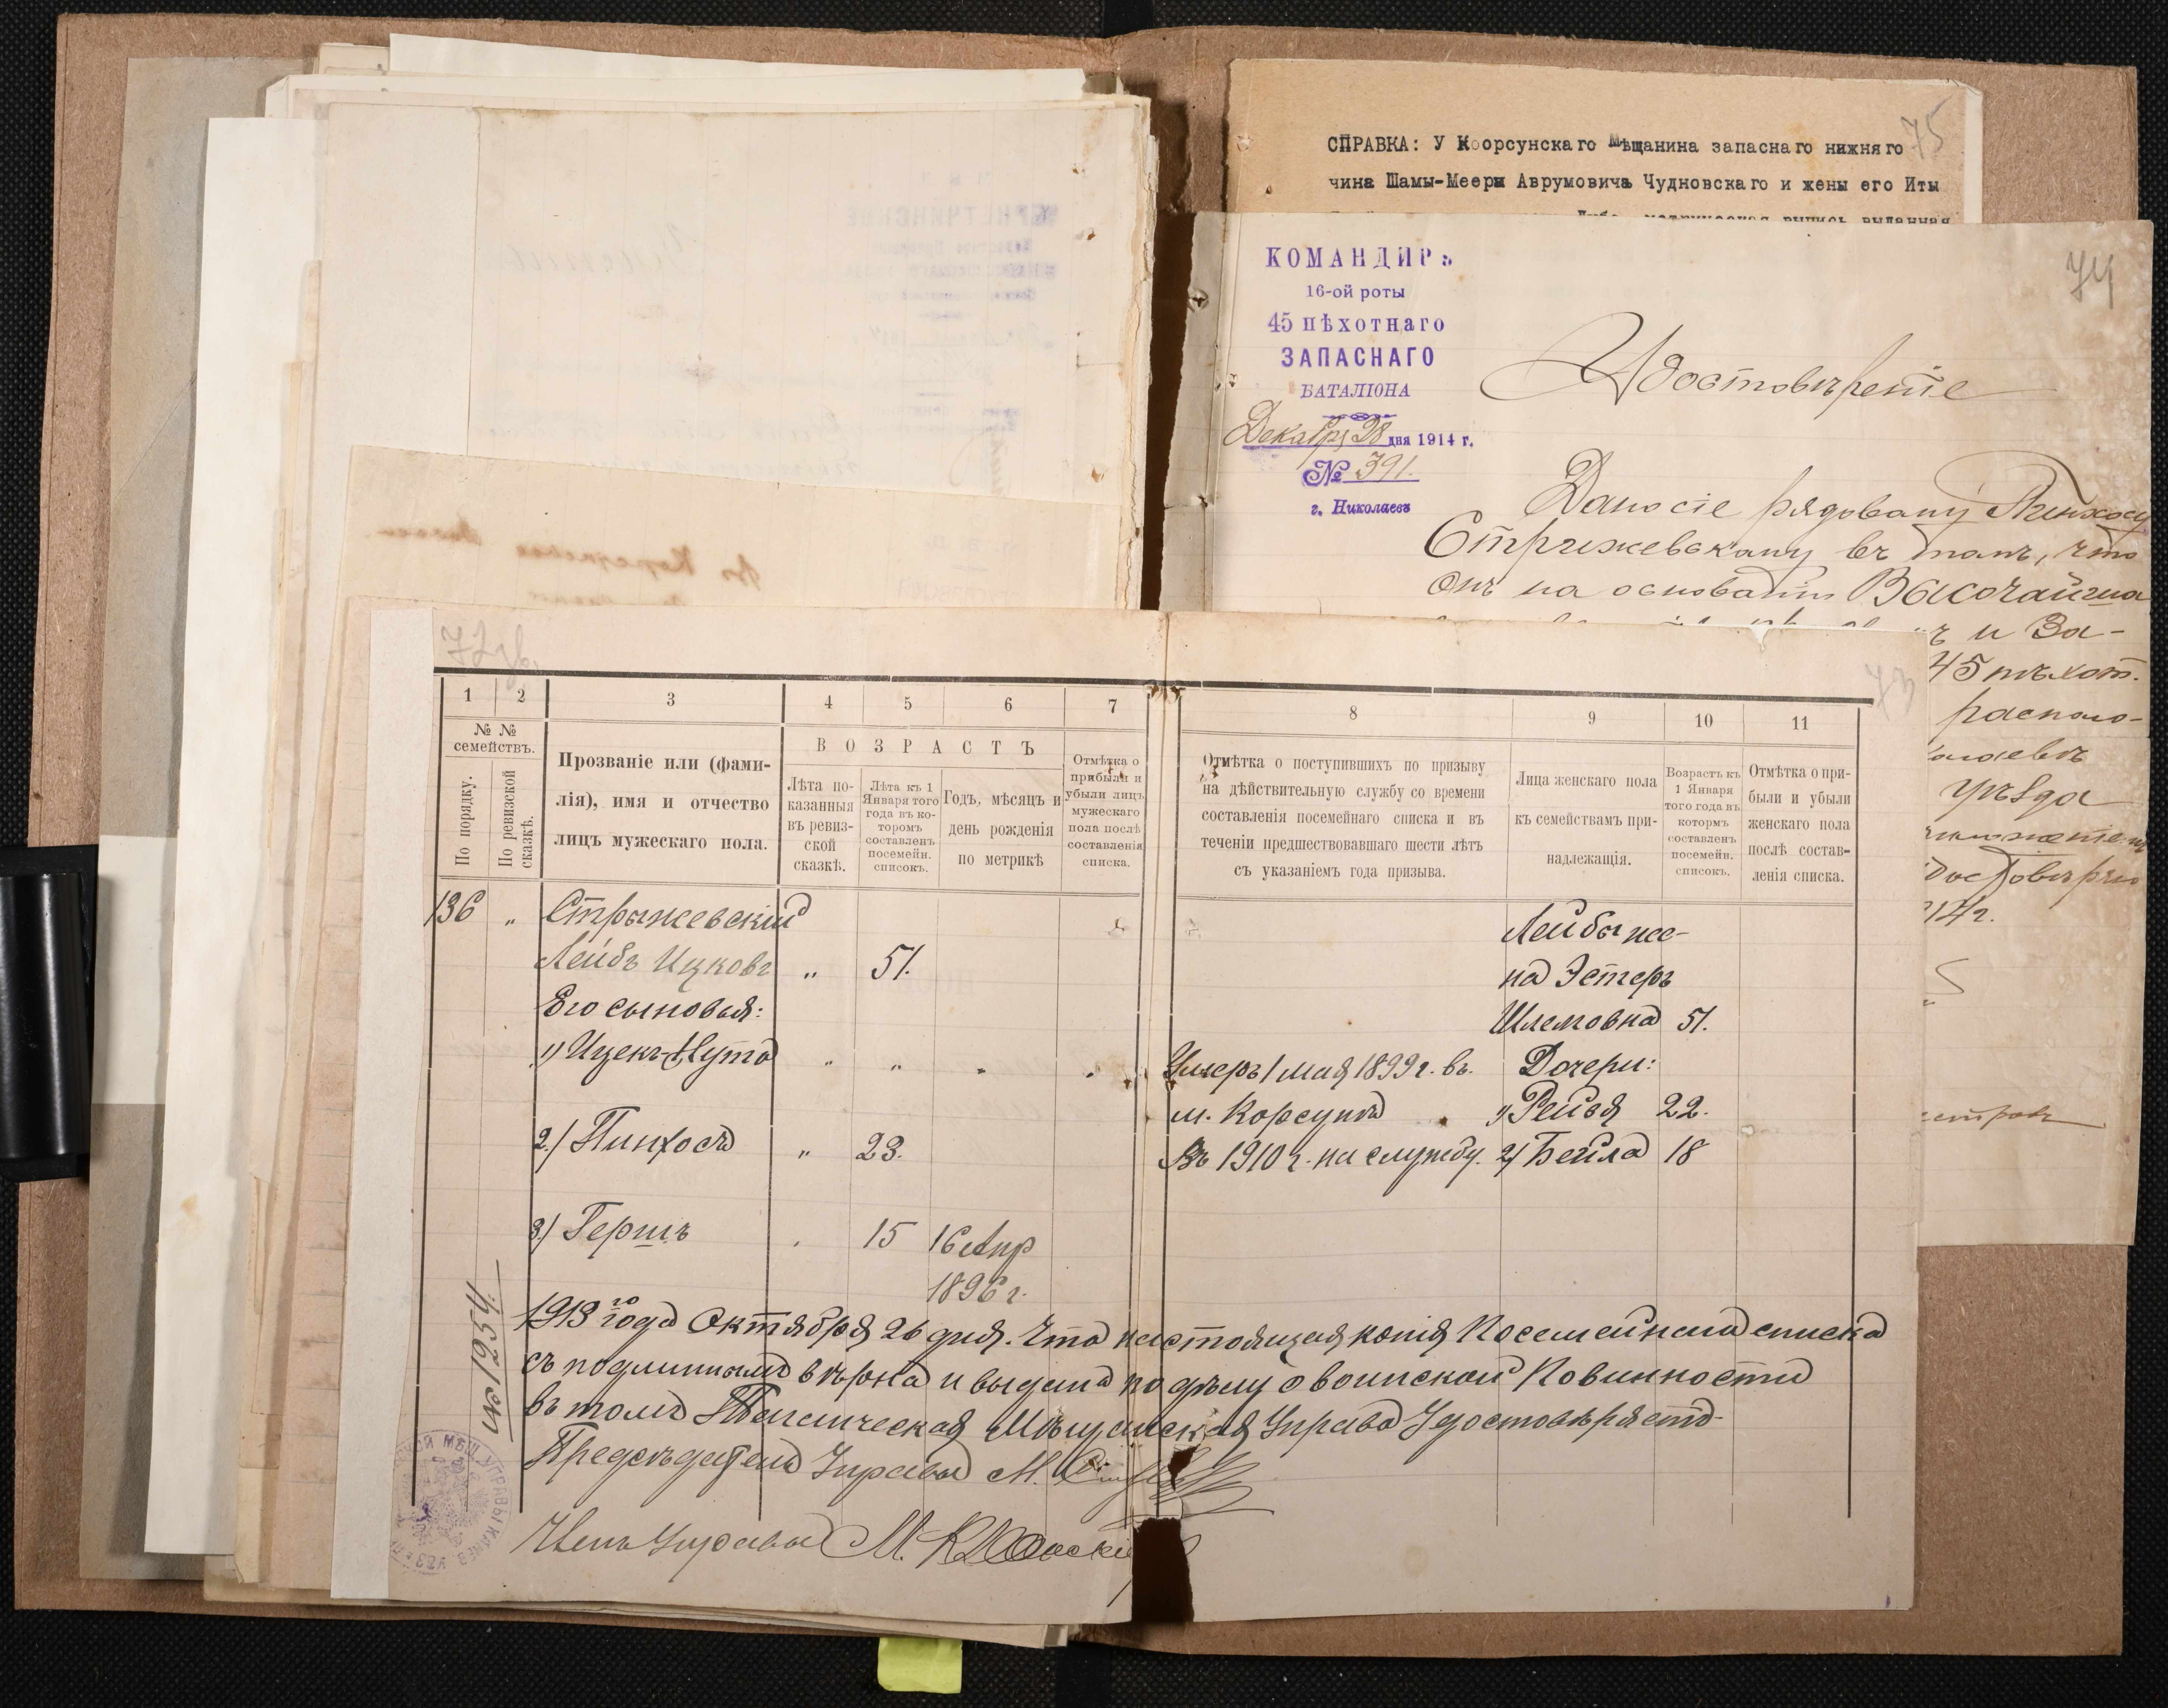 75
СПРАВКА: У Коорсунскаго Мѣщанина запаснаго нижняго
чина Шамы-Меера Аврумовича Чудновскаго и жены его Иты
метрическая выпись выданная
74
КОМАНДИРЪ
16-ой роты
45 пѣхотнаго
ЗАПАСНАГО
БАТАЛІОНА
Декабря 28 дня 1914 г.
№ 391.
г. Николаевъ
Удостовѣреніе
Дано сіе рядовому Пинхосу
Стрижевскому въ томъ, что
онъ на основаніи Высочайша
ъ и За-
45 пѣхот.
располо-
уѣзда
72 об.
73
1 2 3 4 5 6 7 8 9 10 11
№ № семействъ.
По порядку.
По ревизской сказкѣ.
Прозваніе или (фами-
лія), имя и отчество
лицъ мужескаго пола.
ВОЗРАСТЪ
Лѣта по-
казанныя
въ ревиз-
ской
сказкѣ.
Лѣта къ 1
Января того
года въ ко-
торомъ
составленъ
посемейн.
списокъ.
Годъ, мѣсяцъ и
день рожденія
по метрикѣ
Отмѣтка о
прибыли и
убыли лицъ
мужескаго
пола послѣ
составленія
списка.
Отмѣтка о поступившихъ по призыву
на дѣйствительную службу со времени
составленія посемейнаго списка и въ
теченіи предшествовавшаго шести лѣтъ
съ указаніемъ года призыва.
Лица женскаго пола
къ семействамъ при-
надлежащія.
Возрастъ къ
1 Января
того года въ
которм
составленъ
посемейн.
списокъ.
Отмѣтка о при-
были и убыли
женскаго пола
послѣ состав-
ленія списка.
136 „ Стрыжевскій
Лейбы же-
Лейбъ Ицковъ „ 51.
на Эстеръ
Его сыновья:
Шлемовна 51.
1) Ицекъ-Нута „ „ „ „ Умеръ 1 мая 1899 г. въ Дочери:
м. Корсунѣ 1) Рейзя 22.
2) Пинхосъ „ 23. Въ 1910 г. на службу. 2) Бейла 18
3) Гершъ „ 15 16 Апр
1896 г.
№ 1254.
1913 го года Октября 26 дня. Что настоящая копія Посемейнаго списка
съ подлиннымъ вѣрна и выдана по дѣлу о воинской Повинности
въ томъ Мѣщанская Управа Удостовѣряетъ
Предсѣдатель Управы М.
Членъ Управы М.